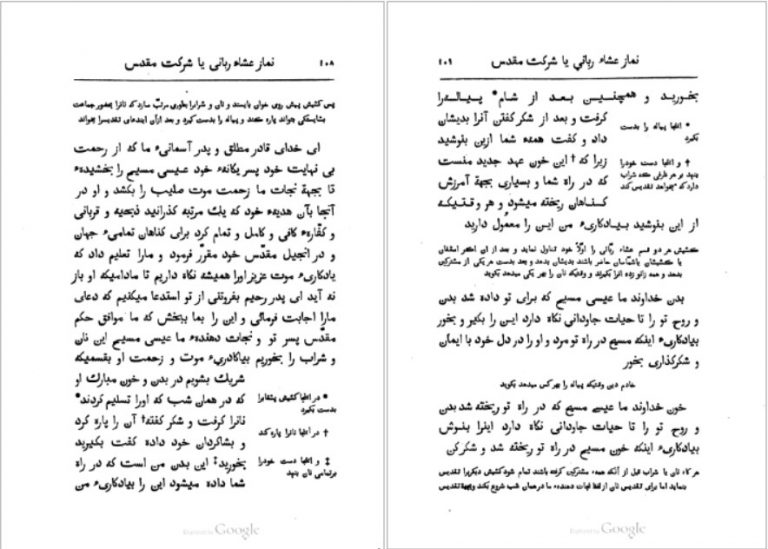 نماز عشاء ربانی یا شرکت مقدس
۱۰۸
پس کشیش پیش روی خوان بایستد و نان و شرابرا بطوری مرتب سازد که نانرا بحضور جماعت
بشایستگی بتواند پاره کند و پیاله را بدست گیرد و بعد ازآن ایندعای تقدیسرا بخواند
ای خدای قادر مطلق و پدر آسمانیء ما که از رحمت
بی نهایت خود پسر یکانهء خود عیسی مسیح را بخشیدهء
تا بجهة نجات ما زحمت موت صلیب را بکشد و او در
آنجا بآن هدیهء خود که یك مرتبه کذرانید ذبحیه و قربانی
و کفّارهء کافی و کامل و تمام کرد برای کناهان تمامیء جهان
و در انجیل مقدّس خود مقرّر فرمود و مارا تعلیم داد که
یادکاریء موت عزیز اورا همیشه نکاه داریم تا مادامیکه او باز
نه آید ای پدر رحیم بفروتنی از تو استدعا میکنیم که دعای
مارا اجابت فرمائی و این را بما ببخش که ما موافق حکم
مقدّس پسر تو و نجات دهندهء ما عیسی مسیح این نان
و شراب را بخوریم بیادکاریء موت و زحمت او بقسمیکه
شریك بشویم در بدن و خون مبارك او
که در همان شب که اورا تسلیم کردند*
نانرا کرفت و شکر کفته† آن را پاره کرد
و بشاکردان خود داده کفت بکیرید
بخورید‡ این بدن من است که در راه
شما داده میشود این را بیادکاریء من
* در اینجا کشیش بشقابرا
بدست بکیرد
† در اینجا نانرا پاره کند
‡ و اینجا دست خودرا
برتمامی نان بنهد
Digitized by Google
نماز عشاء ربانی یا شرکت مقدس
۱۰۹
بخورید و همچنین بعد از شام* پیاله‌را
کرفت و بعد از شکر کفتن آنرا بدیشان
داد و کفت همهء شما ازین بنوشید
زیرا که† این خون عهد جدید منست
که در راه شما و بسیاری بجهة آمرزش
کناهان ریخته میشود و هر وقتیکه
از این بنوشید بیادکاریء من این را معمول دارید
* اینجا پیاله را بدست
بکیرد
† و اینجا دست خودرا
بنهد بر هر ظرفی که شراب
دارد که میخواهد تقدیس کند
کشیش هر دو قسم عشاء ربّانی را اوّلاً خود تناول نماید و بعد از این اکر اسقفان
یا کشیشان یاشمّاسان حاضر باشند بدیشان بدهد و بعد بدست هر یکی از مشترکین
بدهد و همه زانو زده آنرا بکیرند و وقتیکه نان را بهر یکی میدهد بکوید
بدن خداوند ما عیسی مسیح که برای تو داده شد بدن
و روح تو را تا حیات جاودانی نکاه دارد این را بکیر و بخور
بیادکاریء اینکه مسیح در راه تو مرد و او را در دل خود با ایمان
و شکرکذاری بخور
خادم دین وقتیکه پیاله را بهرکس میدهد بکوید
خون خداوند ما عیسی مسیح که در راه تو ریخته شد بدن
و روح تو را تا حیات جاودانی نکاه دارد اینرا بنوش
بیادکاریء اینکه خون مسیح در راه تو ریخته شد و شکر کن
هر کاه نان یا شراب قبل از آنکه همهء مشترکین کرفته باشند تمام شود کشیش دیکربرا تقدیس
بنماید اما برای تقدیس نان از لفظ نجات دهندهء ما در همان شب شروع بکند و بجهة تقدیس
Digitized by Google